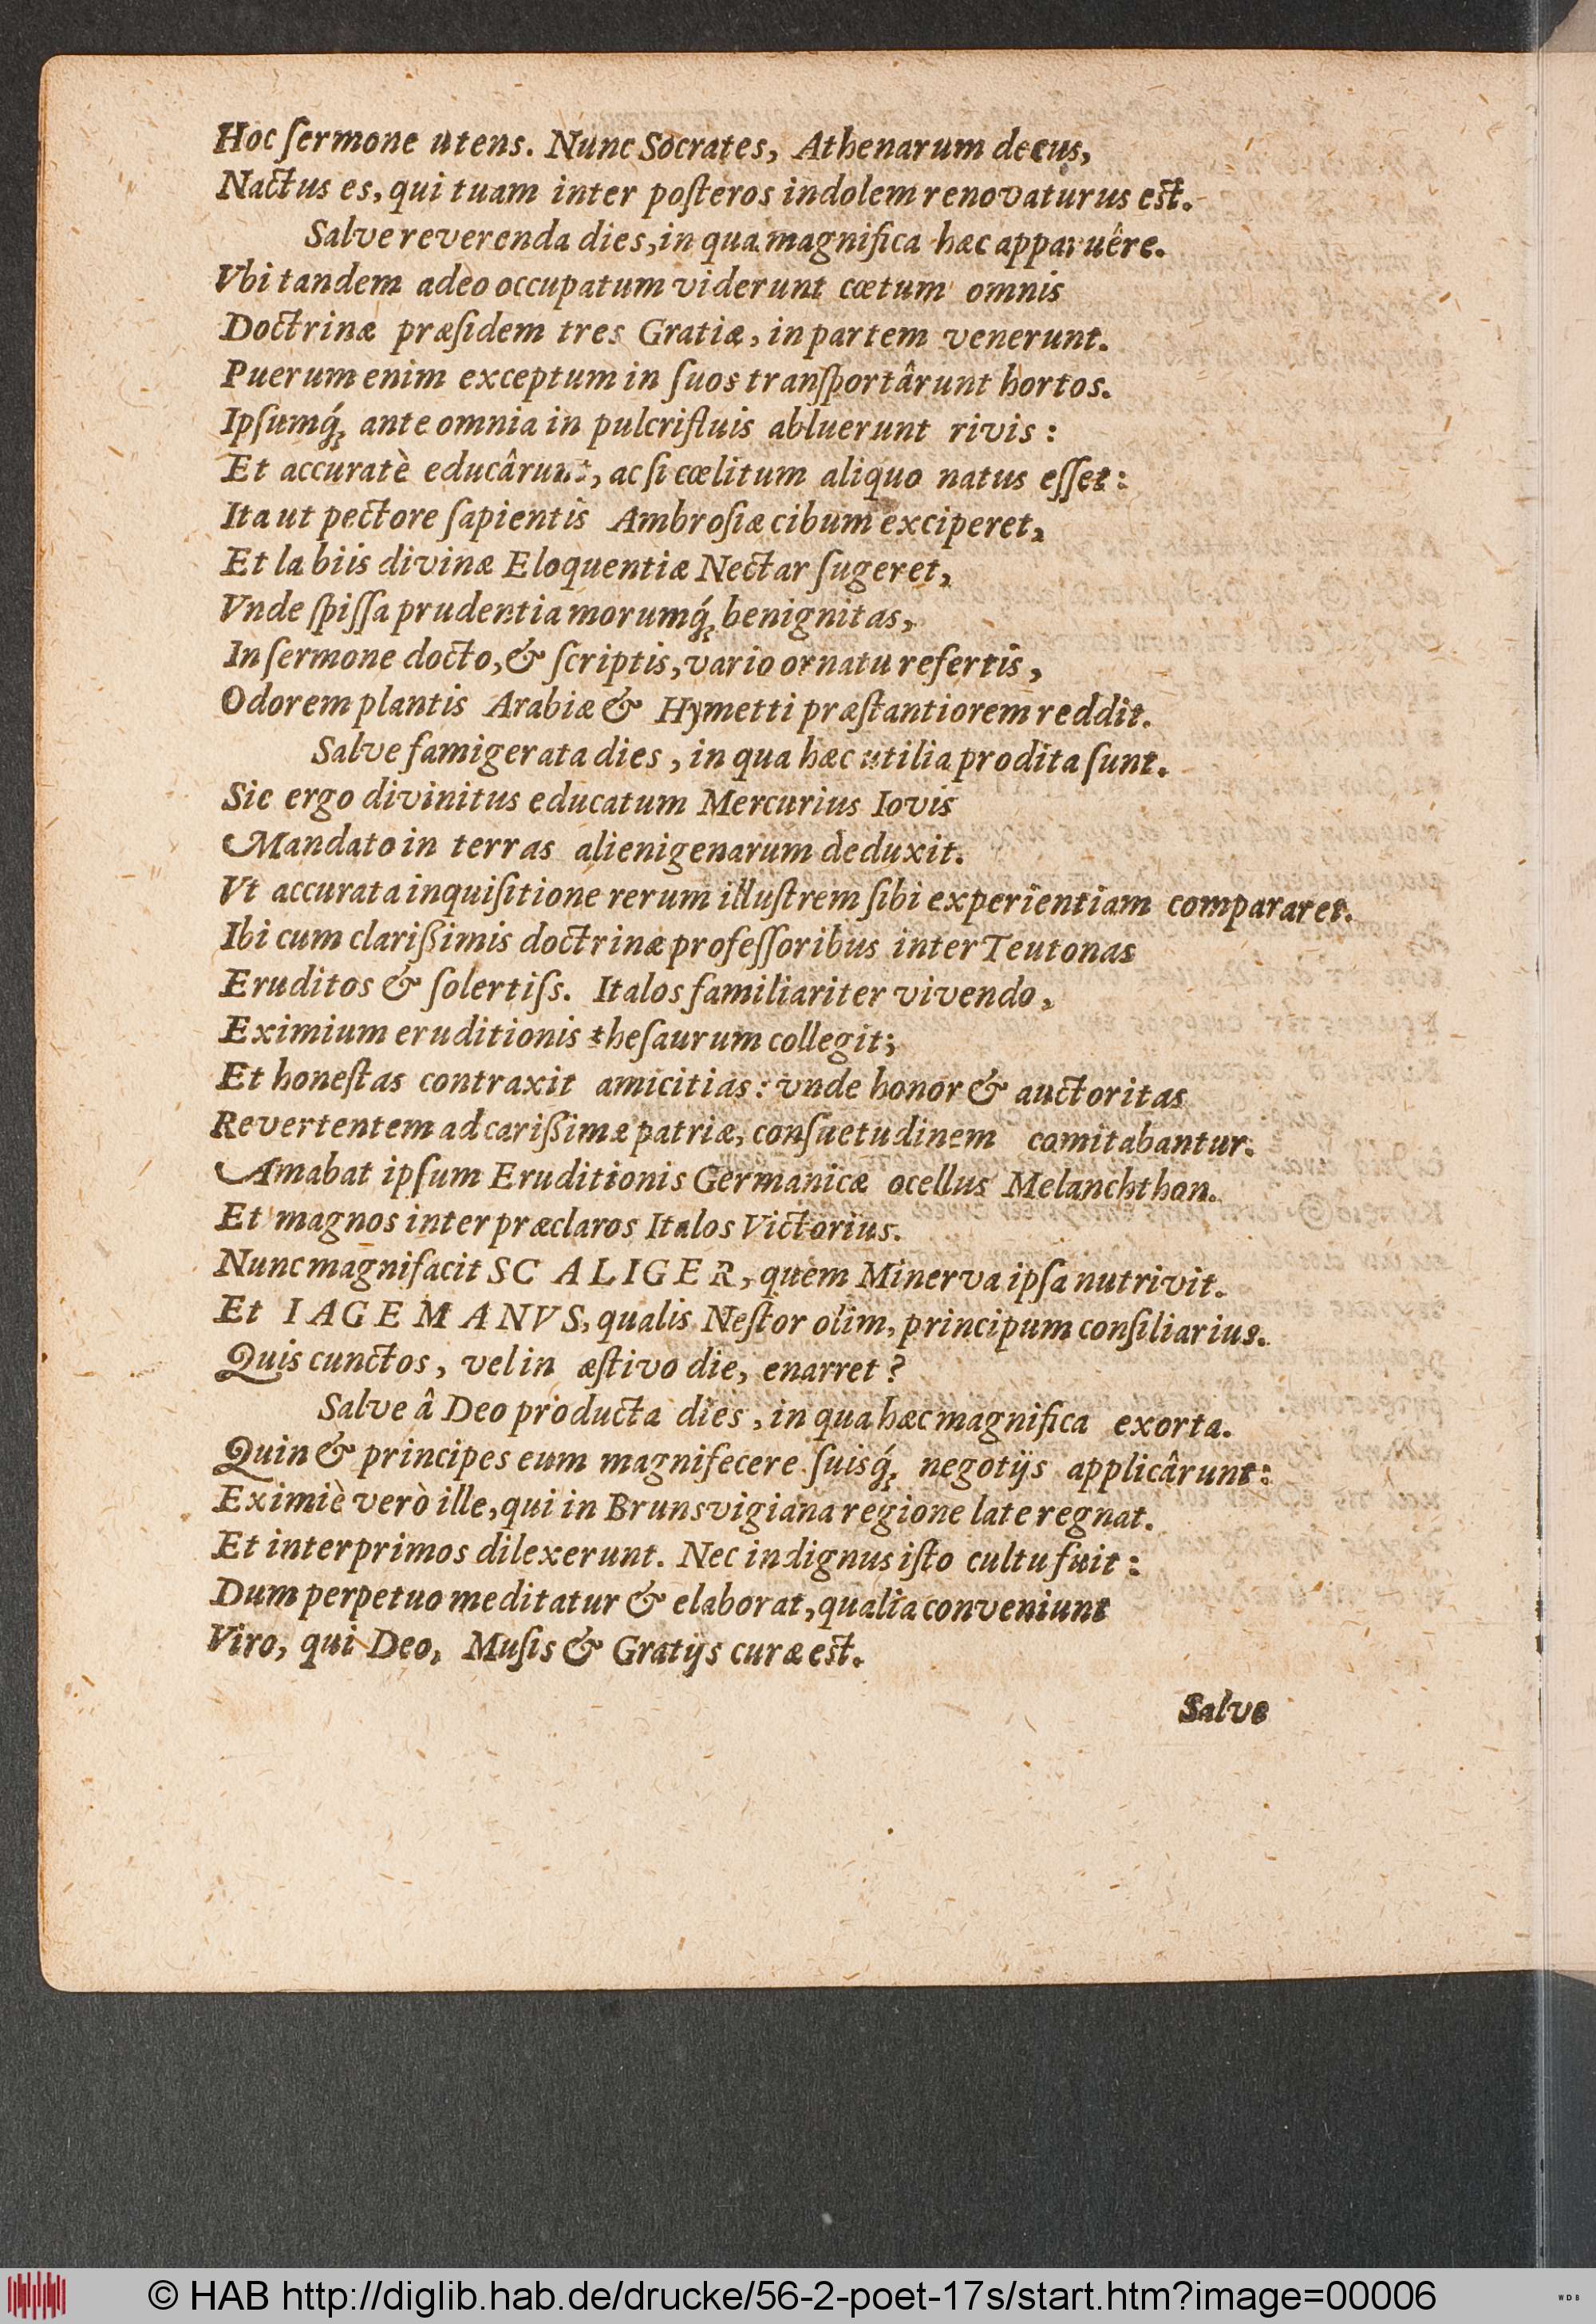 Hoc ſermone utens. Nunc Socrates, Athenarum decus,
Nactus es, qui tuam inter poſteros indolem renovaturus est.
Salve reverenda dies, in qua magnifica hæc apparuêre.
Vbi tandem adeo occupatum viderunt cœtum omnis
Doctrinæ præſidem tres Gratiæ, in partem venerunt.
Puerum enim exceptum in ſuos tranſportârunt hortos.
Ipſumq́; ante omnia in pulcrifluis abluerunt rivis:
Et accuratè educârunt, ac ſi cœlitum aliquo natus eſſet:
Ita ut pectore ſapientis Ambroſiæ cibum exciperet,
Et labiis divinæ Eloquentiæ Nectar ſugeret,
Vnde ſpiſſa prudentia morumq́; benignitas,
In ſermone docto, & ſcriptis, vario ornatu refertis,
Odorem plantis Arabiæ & Hymetti præſtantiorem reddit.
Salve famigerata dies, in qua hæc utilia prodita ſunt.
Sic ergo divinitus educatum Mercurius Iovis
Mandato in terras alienigenarum deduxit.
Vt accurata inquiſitione rerum illuſtrem ſibi experientiam compararet.
Ibi cum clarißimis doctrinæ profeſſoribus inter Teutonas
Eruditos & ſolertiſs. Italos familiariter vivendo,
Eximium eruditionis theſaurum collegit;
Et honeſtas contraxit amicitias: vnde honor & auctoritas
Revertentem ad carißimæ patriæ, conſuetudinem comitabantur.
Amabat ipſum Eruditionis Germanicæ ocellus Melanchthon.
Et magnos inter præclaros Italos Victorius.
Nunc magnifacit SCALIGER, quem Minerva ipſa nutrivit.
Et IAGEMANVS, qualis Neſtor olim, principum conſiliarius.
Quis cunctos, vel in æſtivo die, enarret?
Salve â Deo producta dies, in qua hæc magnifica exorta.
Quin & principes eum magnifecere ſuisq́; negotijs applicârunt:
Eximiè verò ille, qui in Brunsvigiana regione late regnat.
Et inter primos dilexerunt. Nec indignus iſto cultu fuit:
Dum perpetuo meditatur & elaborat, qualia conveniunt
Viro, qui Deo, Muſis & Gratijs curæ est.
Salve
© HAB http://diglib.hab.de/drucke/56-2-poet-17s/start.htm?image=00006
WDB